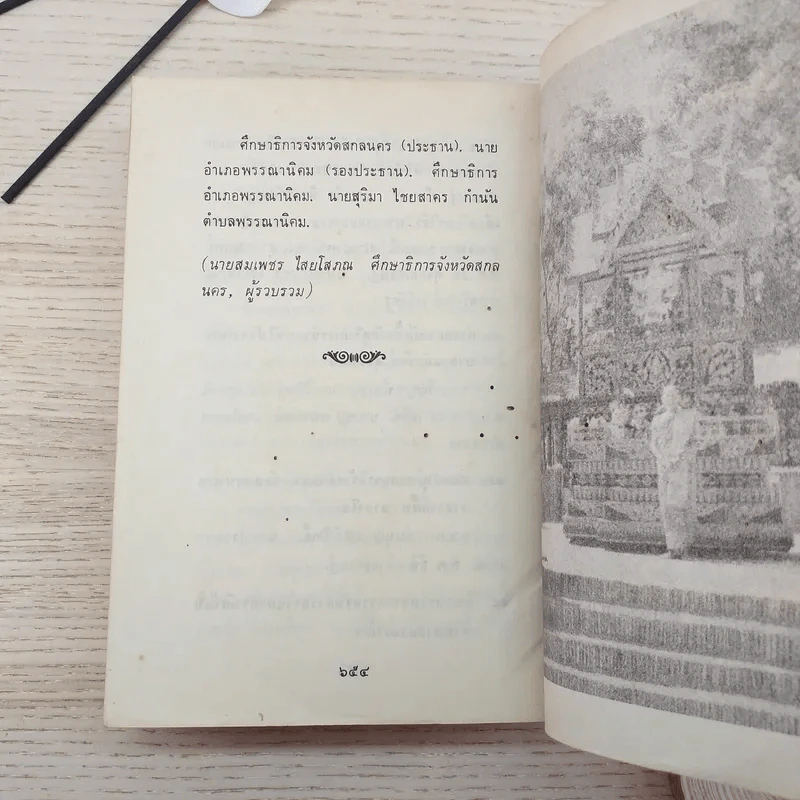 ศึกษาธิการจังหวัดสกลนคร (ประธาน). นาย
อำเภอพรรณานิคม (รองประธาน). ศึกษาธิการ
อำเภอพรรณานิคม. นายสุริมา ไชยสาคร กำนัน
ตำบลพรรณานิคม.
(นายสมเพชร ไสยโสภณ ศึกษาธิการจังหวัดสกล
นคร, ผู้รวบรวม)
๖๕๔